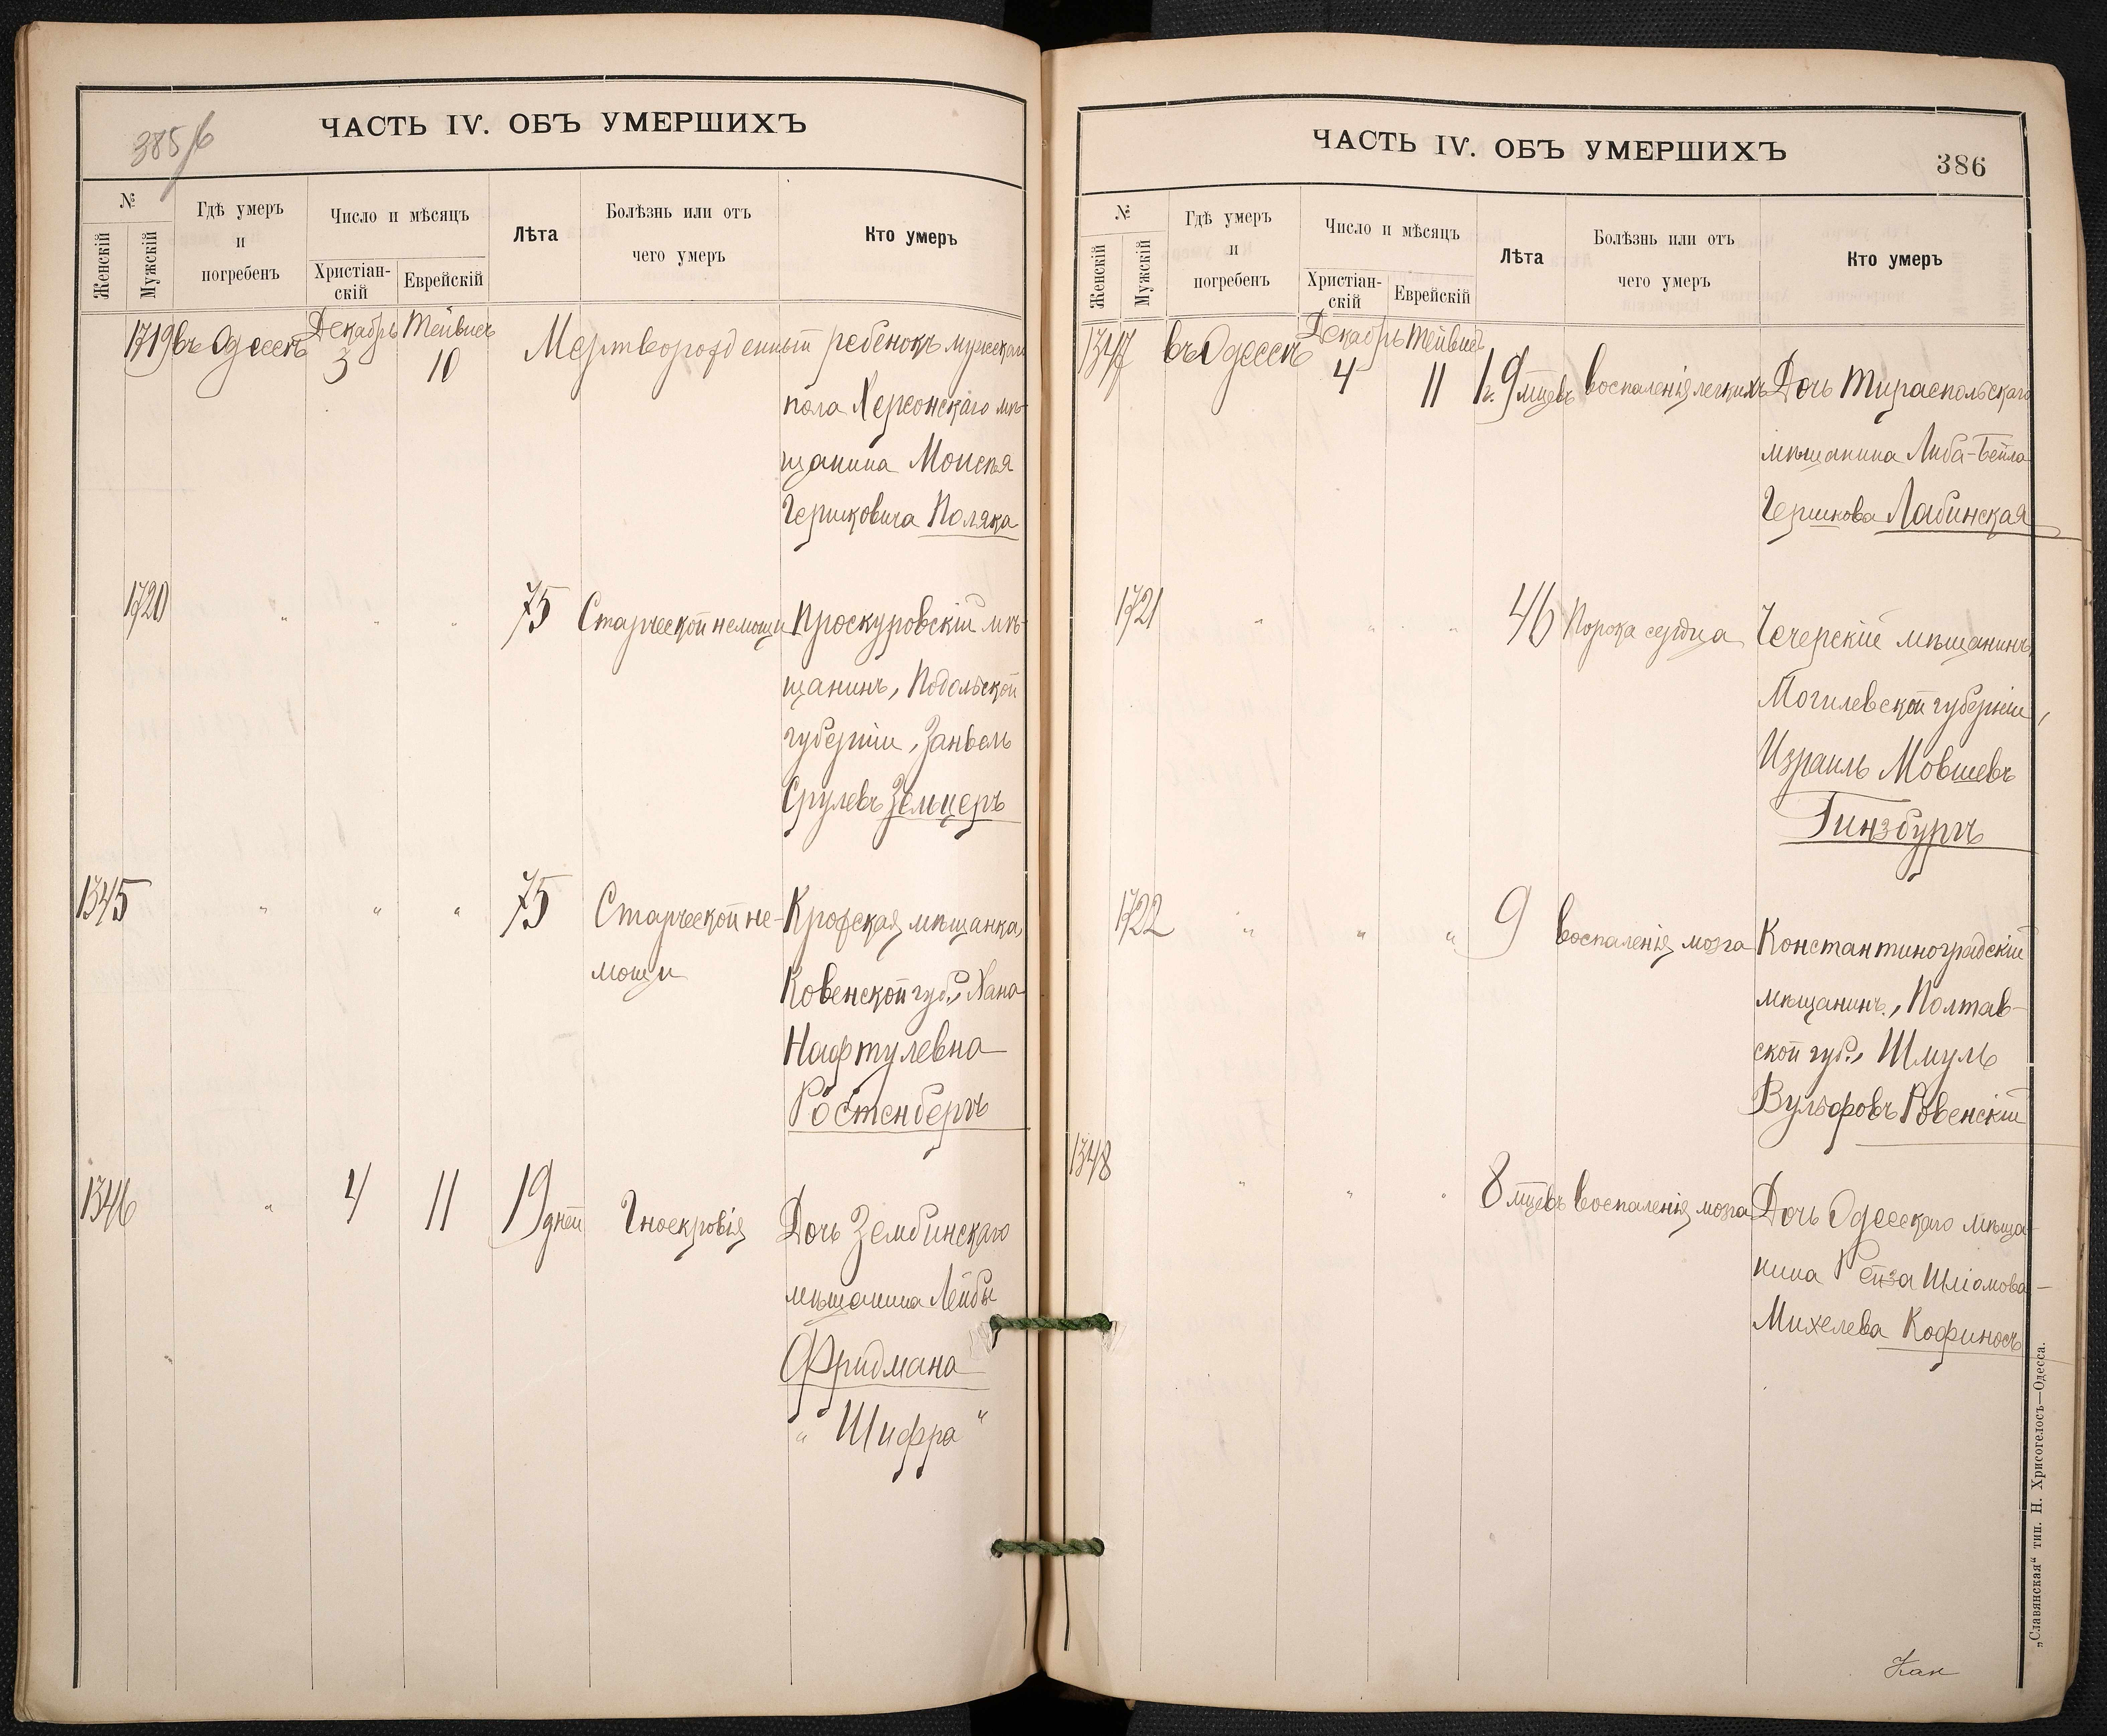 385 об
ЧАСТЬ IV. ОБЪ УМЕРШИХЪ
№
Женскій
Мужскій
Гдѣ умеръ
и
погребенъ
Число и мѣсяцъ
Христіан-
скій
Еврейскій
Лѣта
Болѣзнь или отъ
чего умеръ
Кто умеръ
1719 въ Одессѣ Декабрь 3 Тейвисъ 10 Мертворожденный ребенокъ мужскаго
пола Херсонскаго мѣ-
щанина Моисея
Гершковича Поляка
1720 " " " 75 Старческой немощи Проскуровскій мѣ-
щанинъ, Подольской
губерніи, Занвель
Срулевъ Зельцеръ
1345 " " " 75 Старческой не- Крожская мѣщанка,
мощи Ковенской губ., Хана
Нафтулевна
Ростенбергъ
1346 " 4 11 19 дней Гноекровія Дочь Зембинскаго
мѣщанина Лейбы
Фридмана
"Шифра"
ЧАСТЬ IV. ОБЪ УМЕРШИХЪ
386
№
Женскій
Мужскій
Гдѣ умеръ
и
погребенъ
Число и мѣсяцъ
Христіан-
скій
Еврейскій
Лѣта
Болѣзнь или отъ
чего умеръ
Кто умеръ
1347 въ Одессѣ Декабрь 4 Тейвисъ 11 1 г. 9 мцевъ воспаленія легкихъ Дочь Тираспольскаго
мѣщанина Либа-Бейла
Гершкова Лабинская
1721 " " " 46 Порока сердца Чечерскій мѣщанинъ,
Могилевской губерніи,
Израиль Мовшевъ
Гинзбургъ
1722 " " " 9 воспаленія мозга Константиноградскій
мѣщанинъ, Полтав-
ской губ., Шмуль
Вульфовъ Ровенскій
1348 " " " 8 мцевъ воспаленія мозга Дочь Одесскаго мѣща-
нина Рейза Шліомова-
Михелева Кофиносъ
„Славянская“ тип. Н. Хрисогелосъ—Одесса.